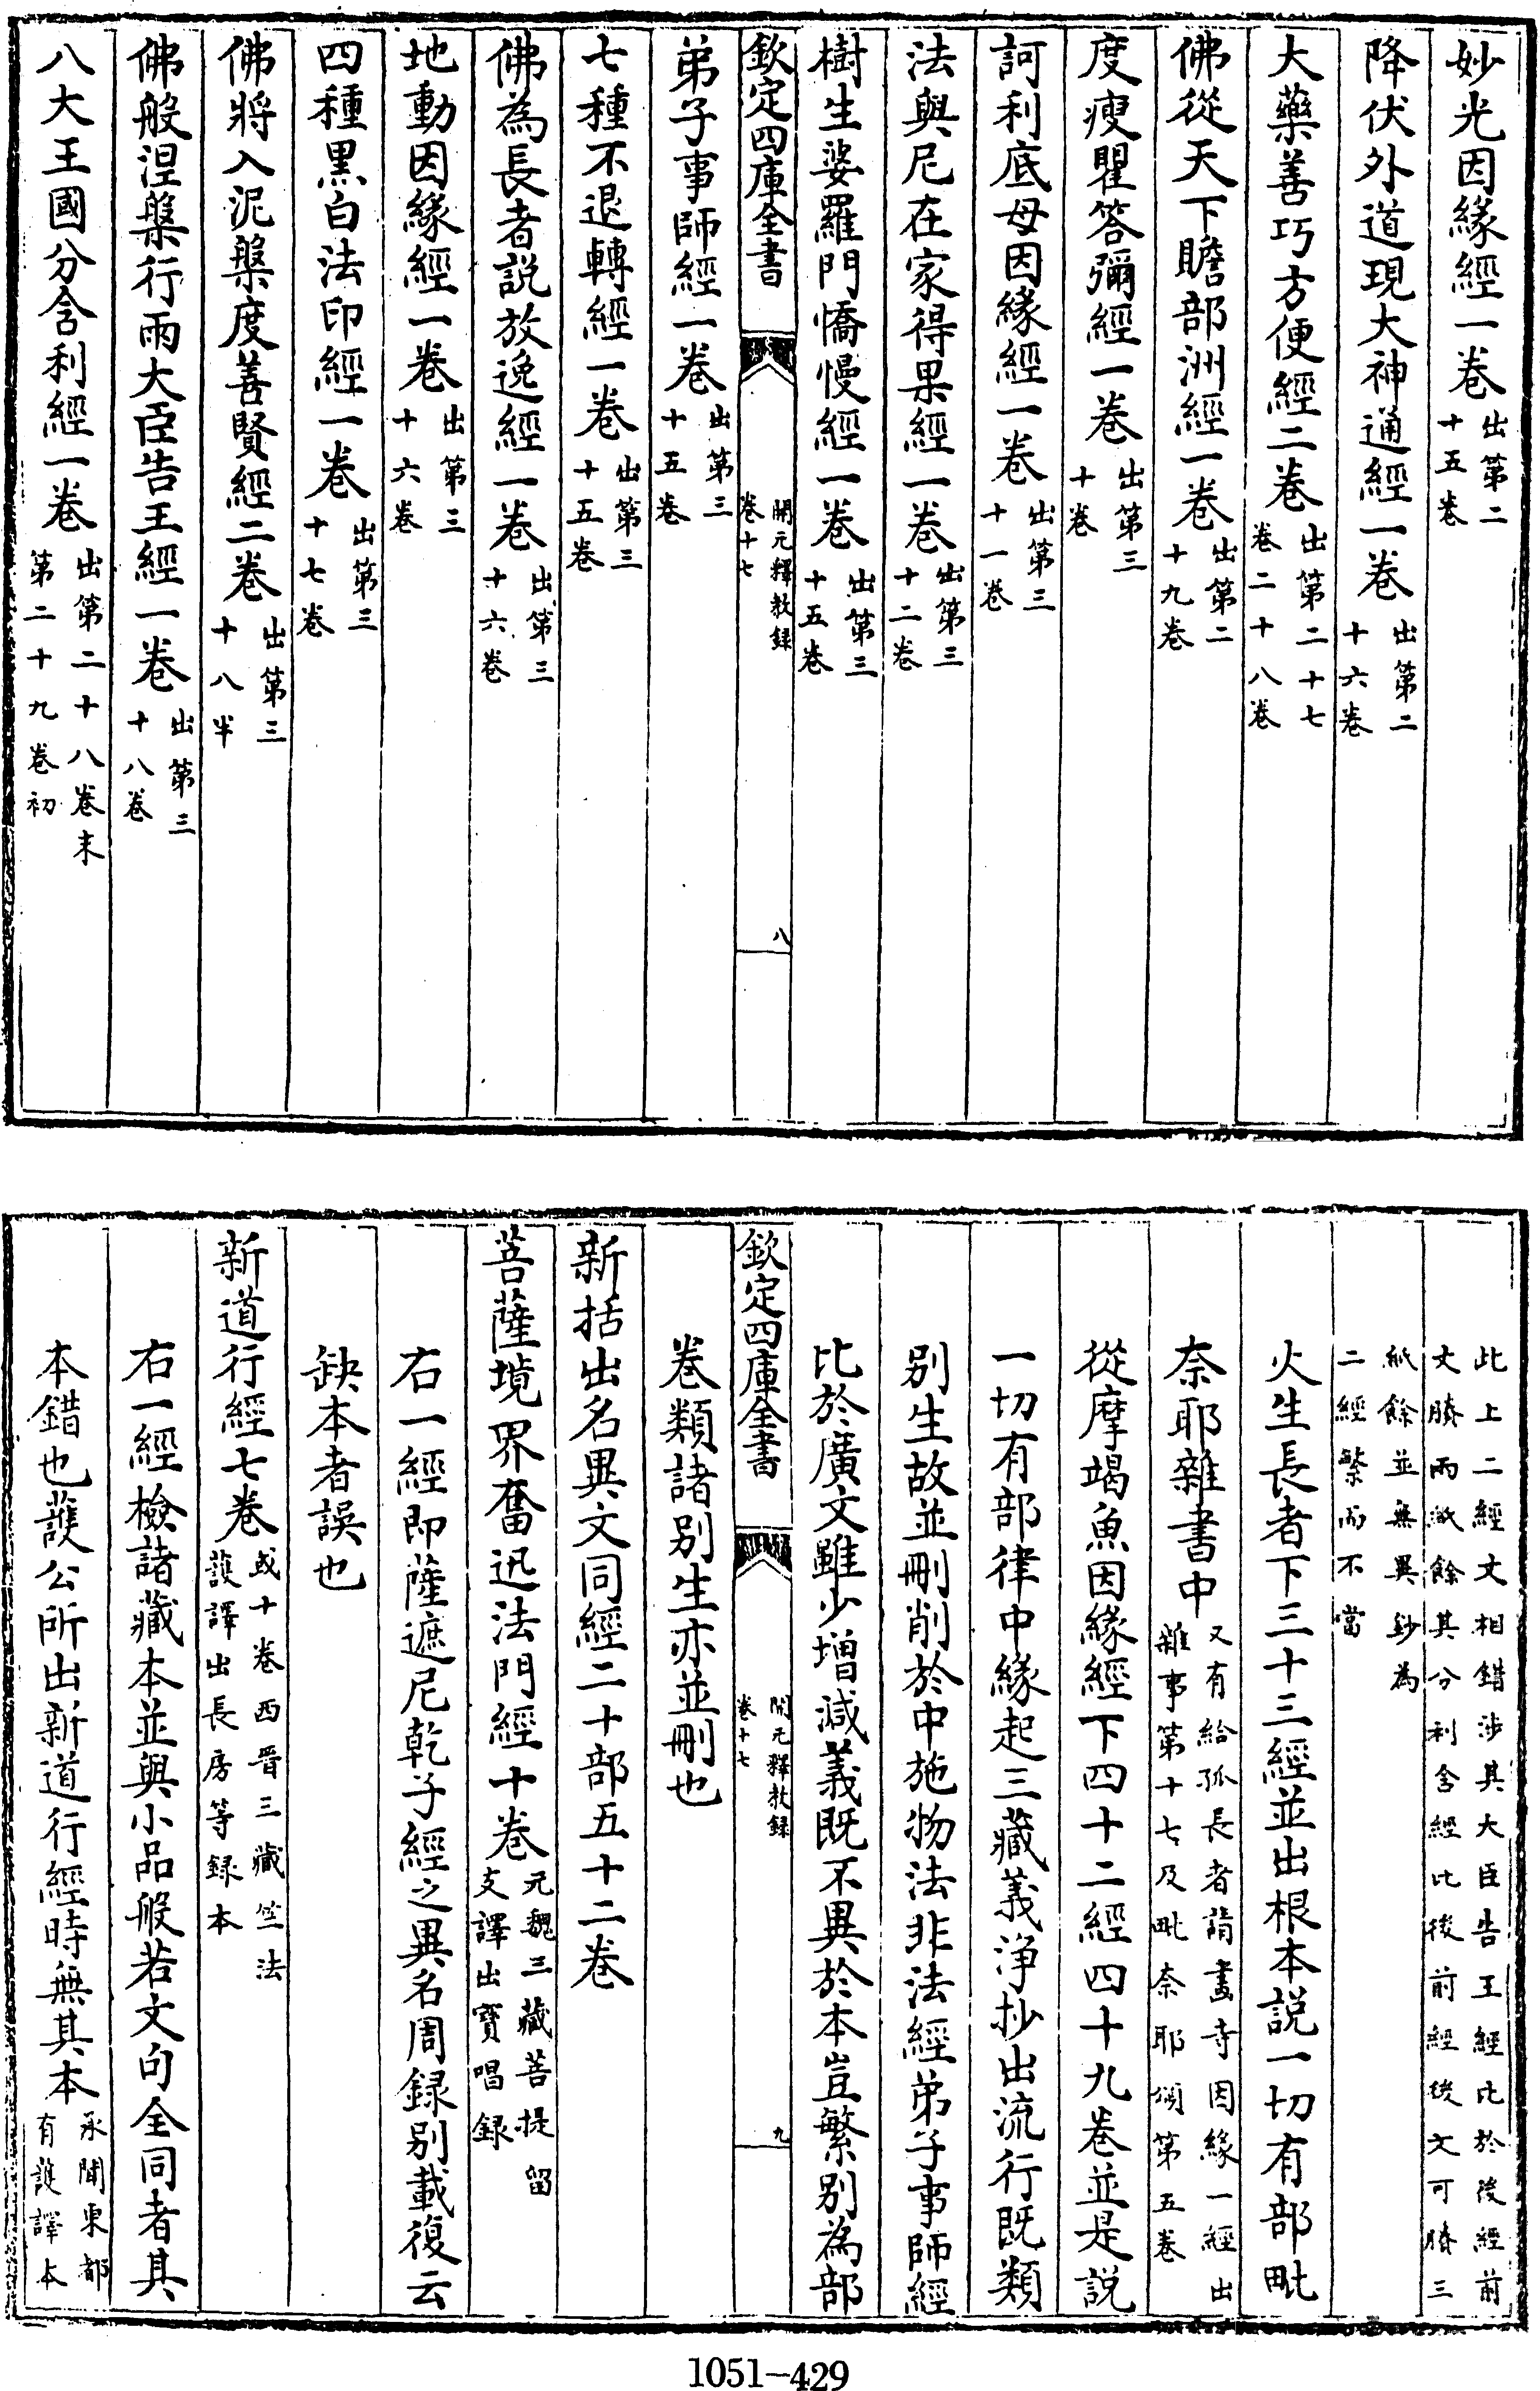 妙光因緣經一卷出第二十五卷
降伏外道現大神通經一卷出第二十六卷
大藥善巧方便經二卷出第二十七卷二十八卷
佛從天下贍部洲經一卷出第二十九卷
度瘦瞿答彌經一卷出第三十卷
訶利底母因緣經一卷出第三十一卷
法與尼在家得果經一卷出第三十二卷
樹生婆羅門憍慢經一卷出第三十五卷
欽定四庫全書 開元釋教録卷十七 八
弟子事師經一卷出第三十五卷
七種不退轉經一卷出第三十五卷
佛為長者説放逸經一卷出第三十六卷
地動因緣經一卷出第三十六卷
四種黑白法印經一卷出第三十七卷
佛將入泥槃度善賢經二卷出第三十八半
佛般涅槃行雨大臣告王經一卷出第三十八卷
八大王國分舍利經一卷出第二十八卷末第二十九卷初
此上二經文相錯涉其大臣告王經比於後經前文賸兩紙餘其分利舍經比後前經後文可賸三
紙餘並無異鈔為二經繁而不當
火生長者下三十三經並出根本説一切有部毗
奈耶雜書中又有給孤長者請畫寺因緣一經出雜事第十七及毗奈耶頌第五卷
從摩竭魚因緣經下四十二經四十九卷並是説
一切有部律中緣起三藏義浄抄出流行既類
別生故並刪削於中施物法非法經弟子事師經
比於廣文雖少增減義既不異於本豈繁別為部
欽定四庫全書 開元釋教録卷十七 九
卷類諸別生亦並刪也
新括出名異文同經二十部五十二卷
菩薩境界奮迅法門經十卷元魏三藏菩提留支譯出寳唱録
右一經即薩遮尼乾子經之異名周録別載復云
缺本者誤也
新道行經七卷或十卷西晉三藏竺法護譯出長房等録本
右一經檢諸藏本並與小品般若文句全同者其
本錯也護公所出新道行經時無其本承聞東都有護譯本
1051-429